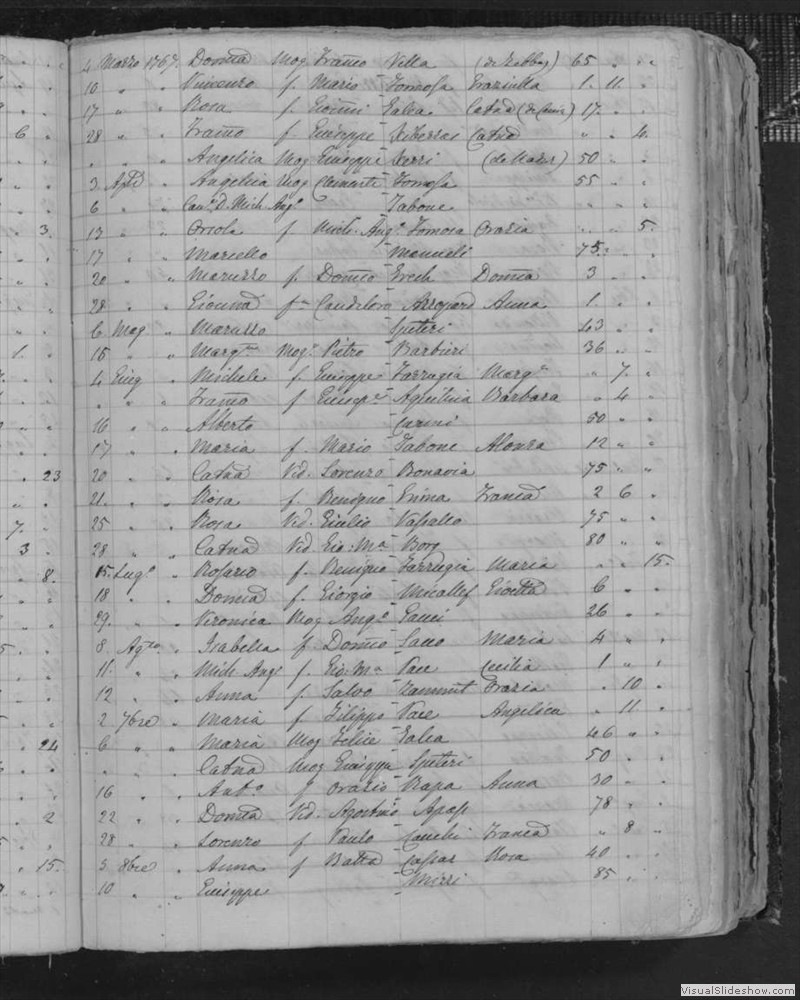 6
3.
1.
23
7.
3
8.
24
2
15.
4 Marzo 1767. Domca Mog Franco Villa (de Zebbug) 65 " "
10 " " Vincenzo f. Mario Tomosa Graziulla 1. 11. "
17 " " Rosa f. Gionni Galea Catna 17. " "
28 " " Franco f. Giuseppe Zibersas Catna " " 4.
" " " Angelica Mog Giuseppe Cerri 50 " "
3 Aple " Angelica Mog Clementi Tomosa 55 " "
6 " " Can. D. Mich. Ang.o Tabone " " "
13 " " Orsola f Mich. Ang.o Tomosa Grazia " " 5.
17 " " Marcello Manueli 75. " "
20 " " Maruzzo f. Domco Grech Domca 3 " "
28 " " Giouna f.a Candeloro Azzopard Anna 1 " "
6 Mag " Maruzzo Spiteri 43 " "
15 " " Marg.ta Mog. Pietro Barbieri 36 " "
4 Giug " Michele f. Giuseppe Farrugia Marg.a " 7. "
" " " Franco f Giusep.e Agiullina Barbara " 4 "
16 " " Alberto 50 " "
17 " " Maria f. Mario Tabone Alonza 12 " "
20 " " Catna Vid. Lorenzo Bonavia 75 " "
21 " " Rosa f. Benigno Franca 2 6 "
25 " " Rosa Vid. Giulio Vassallo 75 " "
28 " " Catna Vid Gio: M.a Borg 80 " "
15. Lug.o " Rosario f. Benigno Farrugia Maria " " 15.
18 " " Domca f. Giorgio Micallef 6 " "
29. " " Veronica Mog Ang.o Gauci 26 " "
8 Ag.to " Isabella f. Domco Sacco Maria 4 " "
11. " " Mich Ang f. Gio: M.a Pace Cecilia 1 " "
12 " " Anna f. Salvo Zammit Grazia " 10 "
2 7bre " Maria f Filippo Pace Angelica " 11 "
6 " " Maria Mog Felice Galea 46 " "
" " " Catna Mog Giuseppe Spiteri 50 " "
16 " " Ant.o f Orazio Rapa Anna 30 " "
22 " " Domca Vid. Agostino Apap 78 " "
28 " " Lorenzo f Paulo Cauchi Franca " 8 "
5 8bre " Anna f Batta Cassar Rosa 40 " "
10 " " Giuseppe Mizzi 85 " "
VisualSlideshow.com